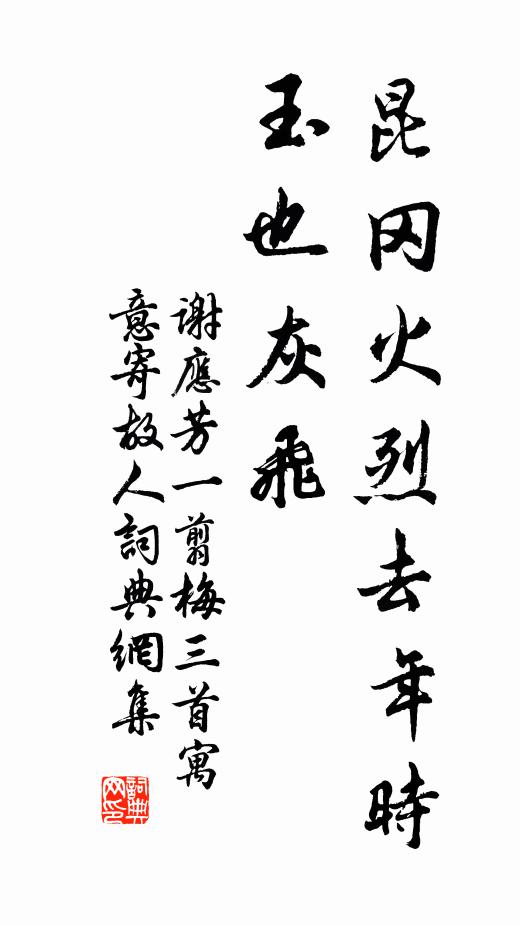 昆冈火烈去年時
玉也灰飛
謝應芳一翦梅三首寓
意寄故人詞典網集
詞典网印